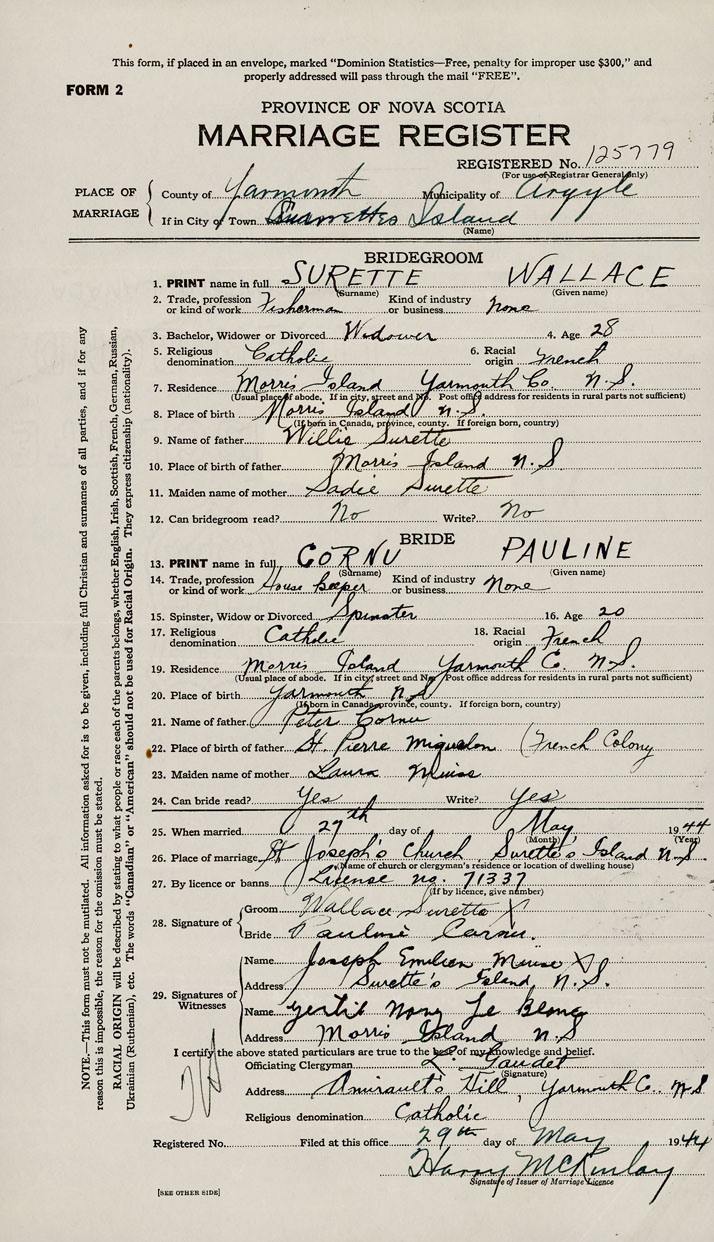 This form, if placed in an envelope, marked "Dominion Statistics—Free, penalty for improper use $300," and
properly addressed will pass through the mail "FREE".
FORM 2
PROVINCE OF NOVA SCOTIA
MARRIAGE REGISTER
REGISTERED No. 125779
(For use of Registrar General only)
PLACE OF MARRIAGE
County of Yarmouth Municipality of Argyle
If in City or Town Surrettes Island
(Name)
BRIDEGROOM
1. PRINT name in full SURETTE WALLACE
(Surname) (Given name)
2. Trade, profession or kind of work Fisherman Kind of industry or business None
3. Bachelor, Widower or Divorced Widower 4. Age 28
5. Religious denomination Catholic 6. Racial origin French
7. Residence Morris Island Yarmouth Co. N.S.
(Usual place of abode. If in city, street and No. Post office address for residents in rural parts not sufficient)
8. Place of birth Morris Island N.S.
(If born in Canada, province, county. If foreign born, country)
9. Name of father Willis Surette
10. Place of birth of father Morris Island N.S
11. Maiden name of mother Sadie Surette
12. Can bridegroom read? No Write? No
BRIDE
13. PRINT name in full CORNU PAULINE
(Surname) (Given name)
14. Trade, profession or kind of work House keeper Kind of industry or business None
15. Spinster, Widow or Divorced Spinster 16. Age 20
17. Religious denomination Catholic 18. Racial origin French
19. Residence Morris Island Yarmouth C. N.S.
(Usual place of abode. If in city, street and No. Post office address for residents in rural parts not sufficient)
20. Place of birth Yarmouth N.S
(If born in Canada, province, county. If foreign born, country)
21. Name of father Peter Cornu
22. Place of birth of father St. Pierre Miquelon (French Colony
23. Maiden name of mother Laura Muise
24. Can bride read? Yes Write? Yes
25. When married 27th day of May 1944
(Month) (Year)
26. Place of marriage St Joseph's Church Surette's Island N.S.
(Name of church or clergyman's residence or location of dwelling house)
27. By licence or banns License no. 71337
(If by licence, give number)
28. Signature of
Groom Wallace Surette X
Bride Pauline Cornu.
29. Signatures of Witnesses
Name Joseph Emilien Muise X
Address Surette's Island N.S.
Name Le Blanc
Address Morris Island N.S
I certify the above stated particulars are true to the best of my knowledge and belief.
Officiating Clergyman L. Gaudet
(Signature)
Address Amirault's Hill, Yarmouth C. N.S
Religious denomination Catholic
Registered No. Filed at this office 29th day of May 1944
Harry McKinlay
Signature of Issuer of Marriage Licence
[SEE OTHER SIDE]
NOTE.—This form must not be mutilated. All information asked for is to be given, including full Christian and surnames of all parties, and if for any
reason this is impossible, the reason for the omission must be stated.
RACIAL ORIGIN will be described by stating to what people or race each of the parents belongs, whether English, Irish, Scottish, French, German, Russian,
Ukrainian (Ruthenian), etc. The words "Canadian" or "American" should not be used for Racial Origin. They express citizenship (nationality).